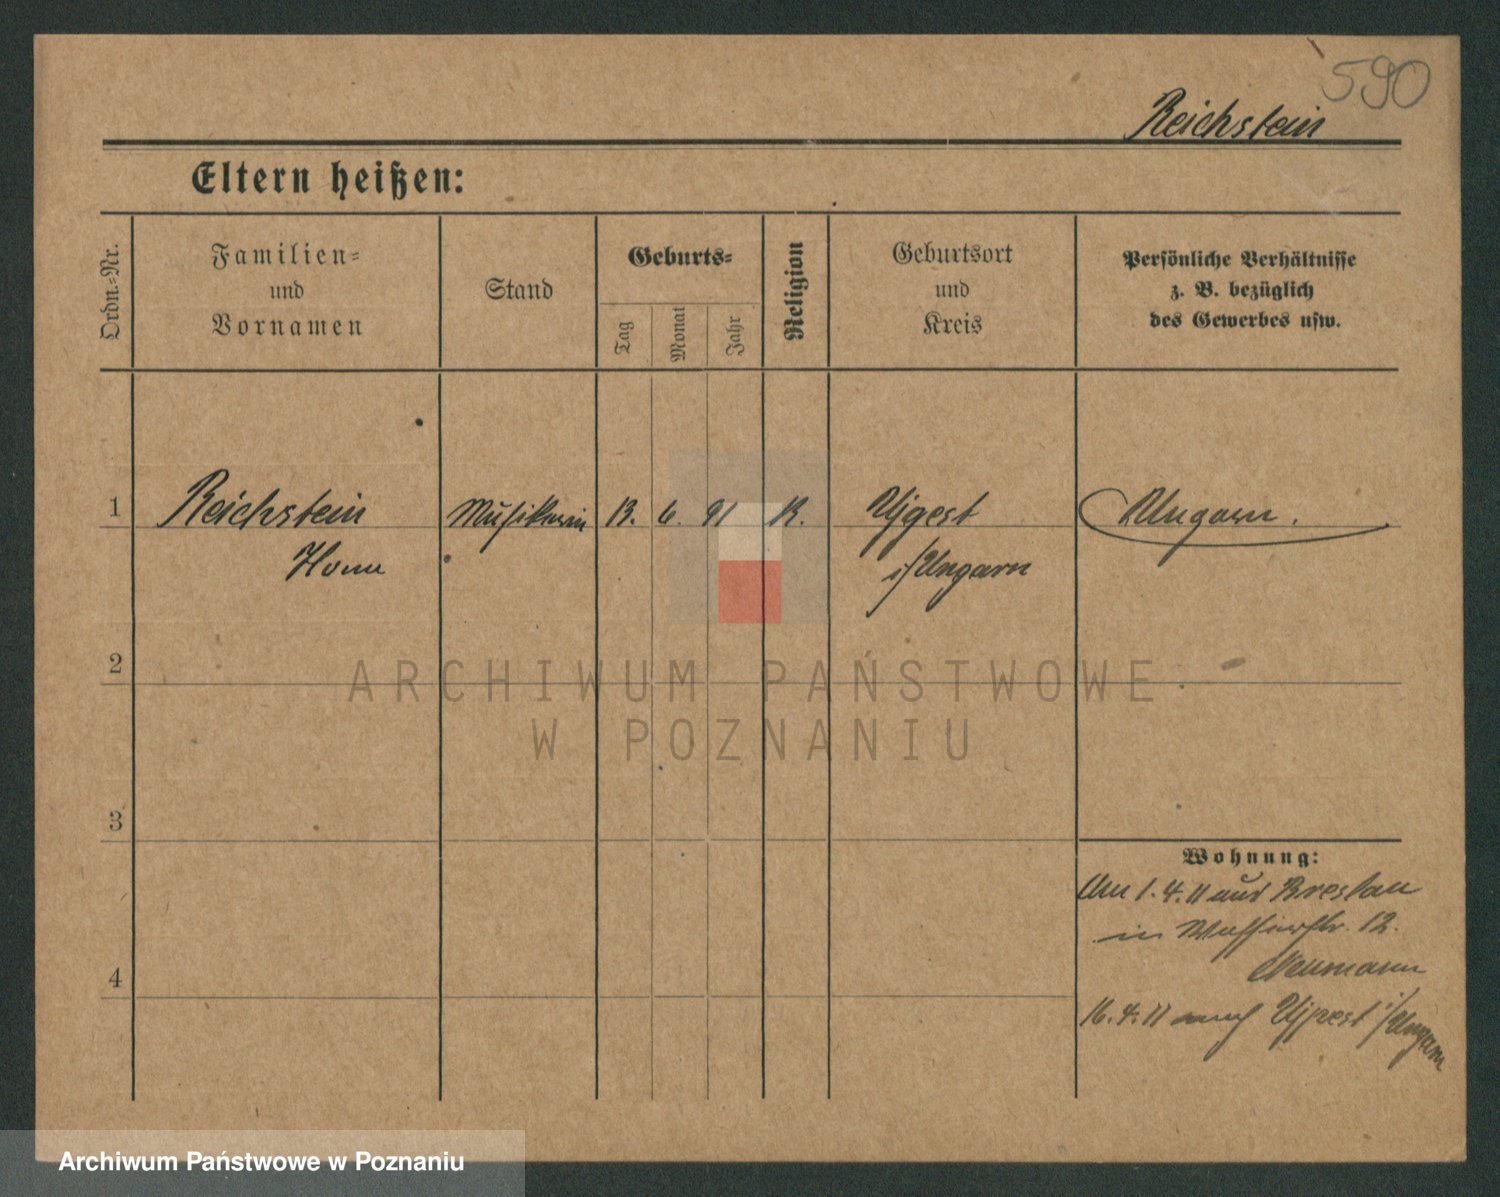 590
Reichstein
Eltern heißen:
Ordn.-Nr.
Familien-
und
Vornamen
Stand
Geburts-
Tag
Monat
Jahr
Religion
Geburtsort
und
Kreis
Persönliche Verhältnisse
z. B. bezüglich
des Gewerbes usw.
1
Reichstein
13. 6. 91
Ujpest
i/Ungarn
Ungarn.
2
ARCHIWUM PAŃSTWOWE
W POZNANIU
3
Wohnung:
Am 1.4.11 aus Breslau
in Wasserstr. 12.
Neumann
4
16.4.11 nach Ujpest i/Ungarn
Archiwum Państwowe w Poznaniu